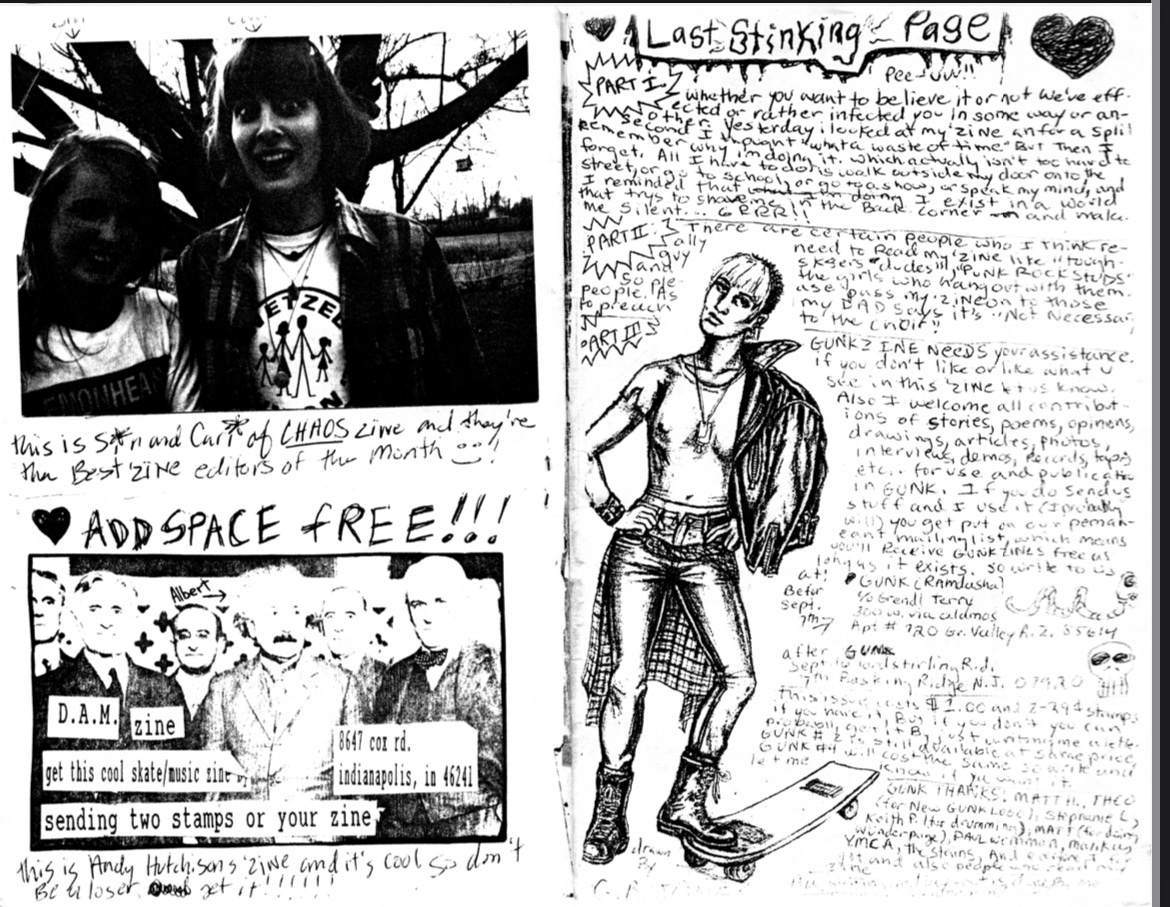 this is S*n and Cari* of CHAOS zine and they're
the Best zine editors of the Month
ADD SPACE fREE!!!
Albert
D.A.M.
zine
8647 cox rd.
get this cool skate/music zine by
indianapolis, in 46241
sending two stamps or your zine
this is Andy Hutchisons 'zine and it's cool so don't
Be a loser get it!!!!!!
Last Stinking Page
Pee-uw!!
PART I.
whether you want to believe it or not we've eff-
ected or rather infected you in some way or an-
other. yesterday i looked at my 'zine an for a split
second I thought "what a waste of time." But Then I
remember why I'm doing it. which actually isn't too hard to
forget. All I have to do is walk outside my door onto the
street, or go to school, or go to a show, or speak my mind, and
I reminded that I exist in a world
that trys to shove me in the Back corner and make
me silent... GRRR!!
PART II:
There are certain people who I think re-
ally need to Read my 'zine like "tough-
guy sk8ers "dudes", "PUNK ROCK STUDS"
and the girls who hang out with them.
so ple- ase pass my 'zine on to those
people. As my DAD says it's "Not Necessary
to preach to the choir"
PART III
GUNKZINE NEEDS your assistance.
if you don't like or like what u
see in this 'ZINE let us know.
Also I welcome all contribut-
ions of stories, poems, opinions,
drawings, articles, photos,
interviews, demos, Records, tapes
etc.. for use and publication
in GUNK. If you do send us
stuff and I use it (I probably
will) you get put on our peman-
eant mailing list, which means
you'll Receive GUNKZINES free as
long as it exists. so write to us
at:
GUNK (Ramdasha)
Befor
c/o Brendl Terry
Sept.
300 w. via
7th
Apt # 120 Gr. Valley AZ. 85614
after
GUNK
Sept
lord stirling R.d.
7th
Basking Ridge N.J. 07920
this issue costs $1.00 and 2-29¢ stamps
if you have it, But if you don't you can
probably get it By just writing me a lette.
GUNK # 2 is still available at same price,
GUNK #4 will cost the same so write and
let me know if ya want it.
GUNK THANKS: MATT H., THEO
(for New GUNK LOGO), Stephanie L,
Keith P. (for drumming), MATT (for doing
wonderpage),
YMCA, the stains, And
and also people who read my
zine
drawn
By